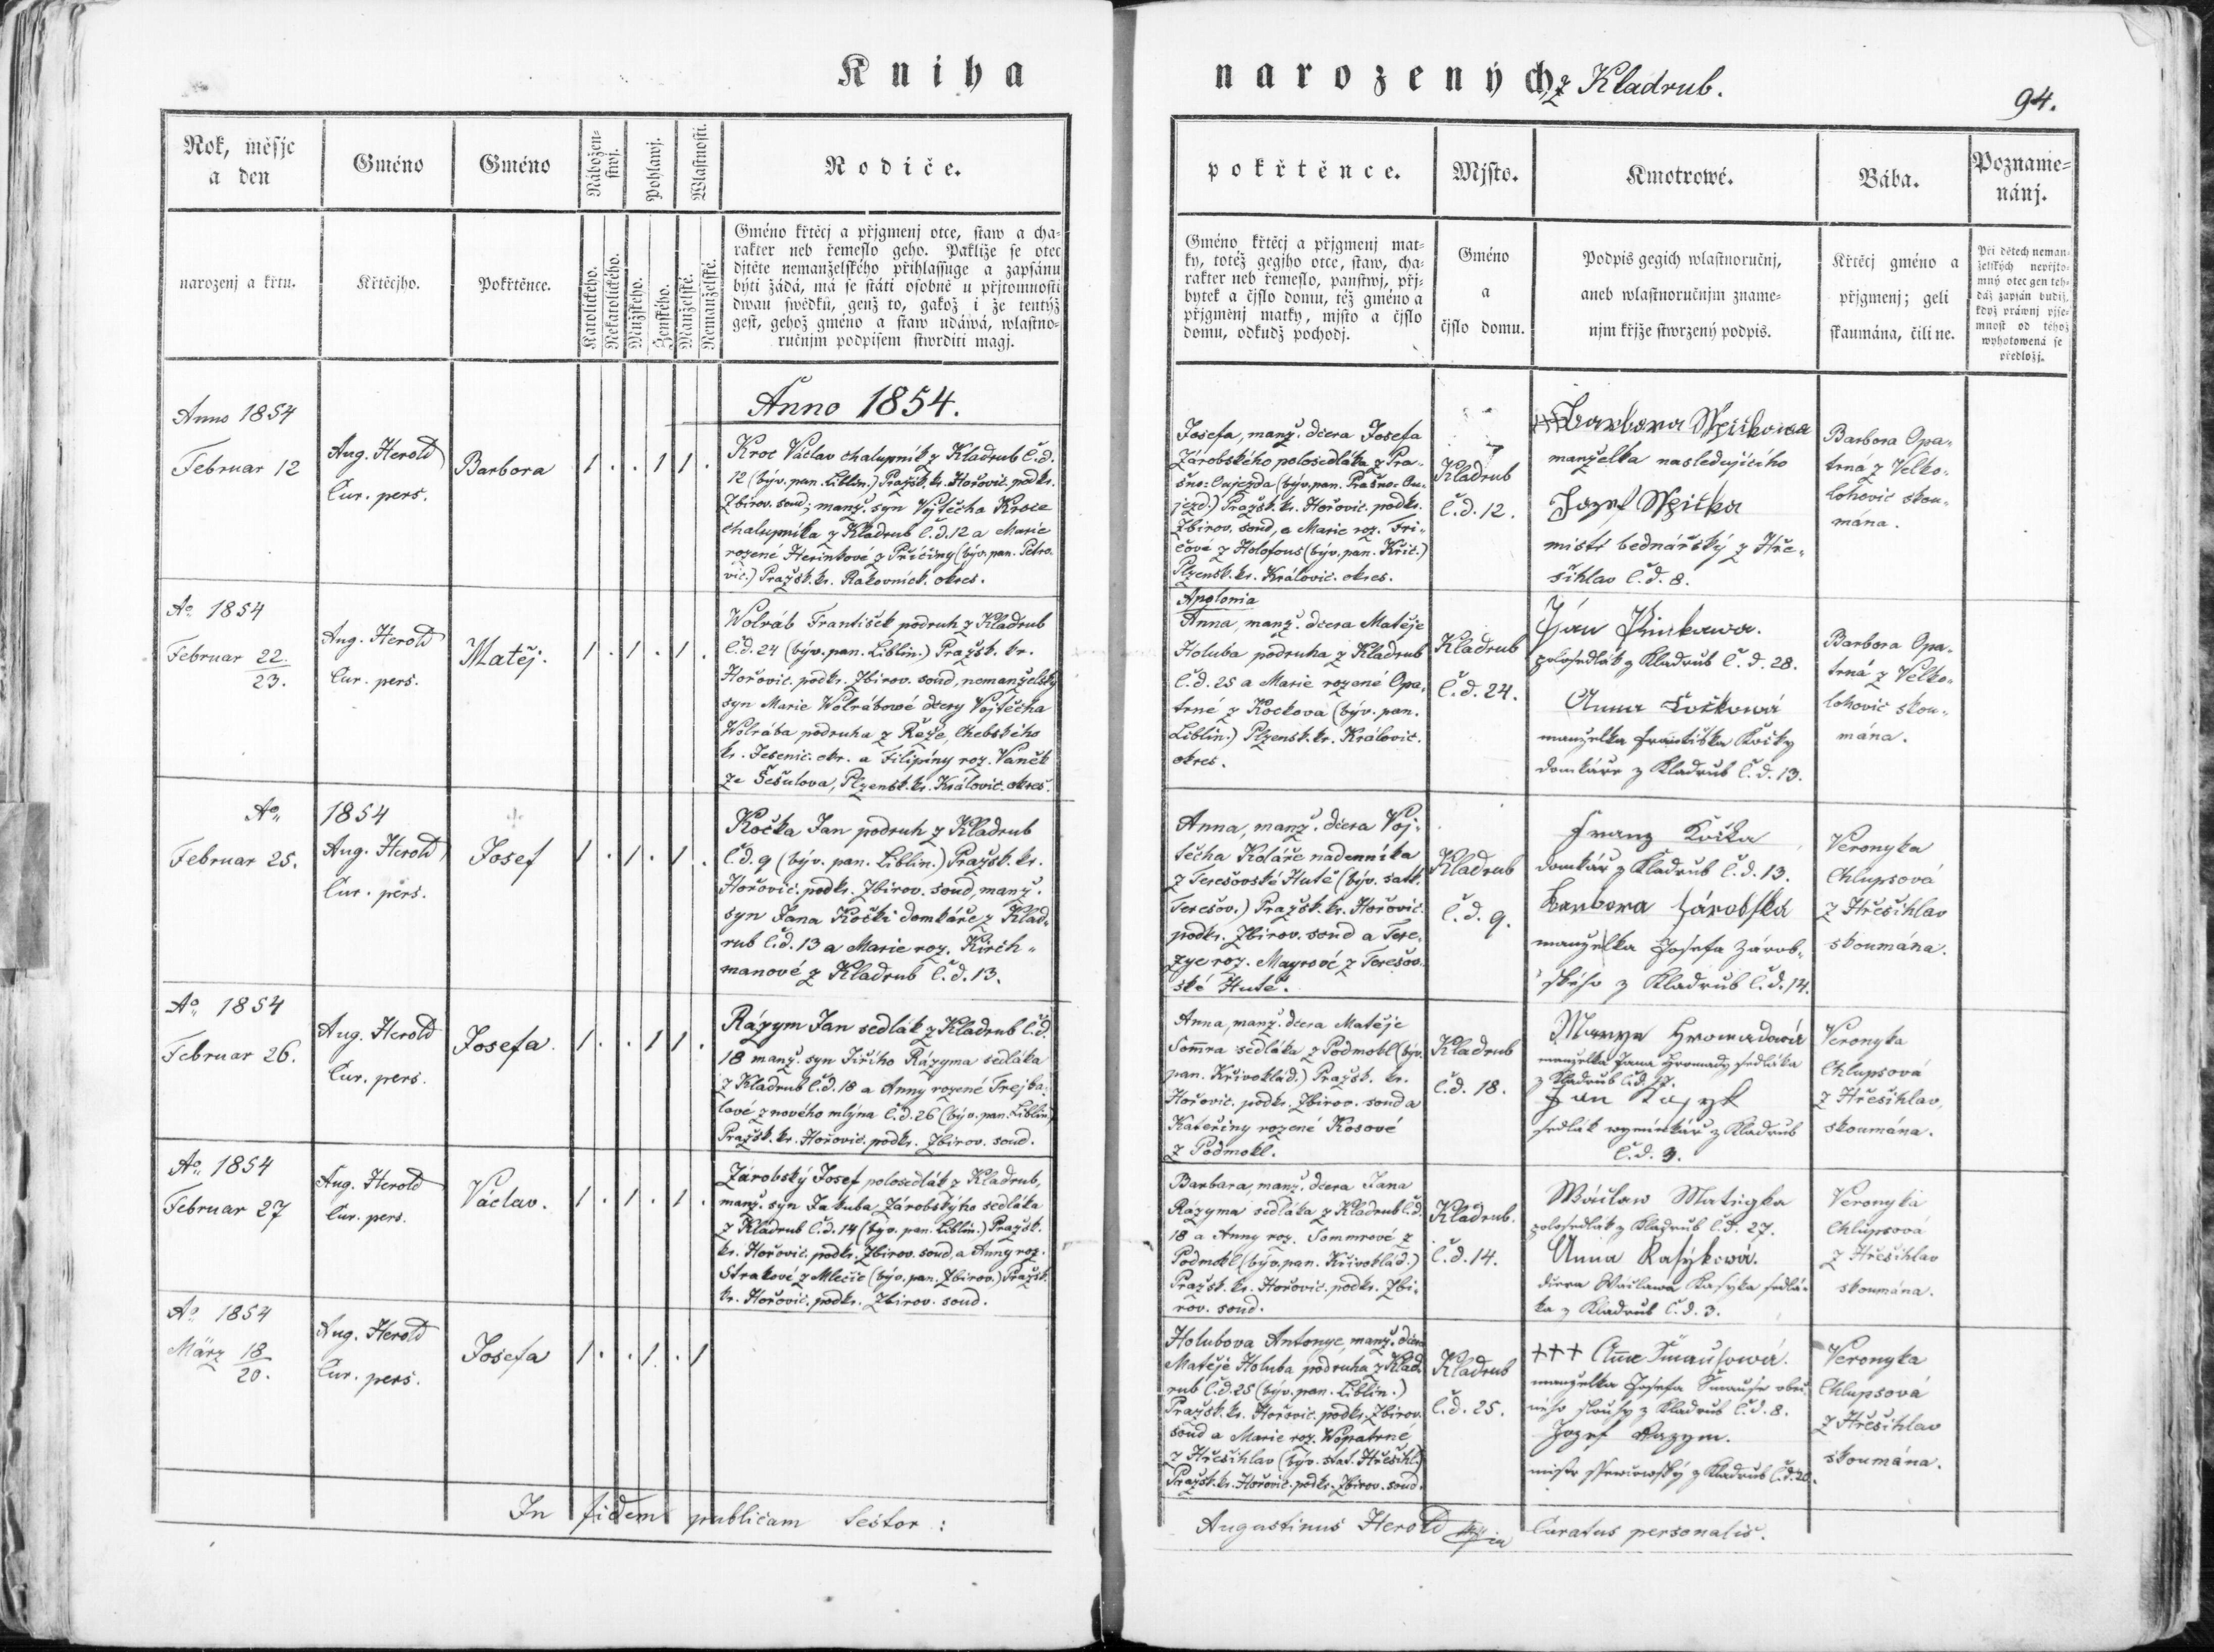 Kniha
narozených z Kladrub.
94.
Rok, měsjc
a den
narozenj a křtu.
Gméno
Křtěcjho.
Gméno
Pokřtěnce.
Nábožen-
stwj.
Katolického.
Nekatolického.
Pohlawj.
Mužského.
Ženského.
Wlastnosti.
Manželské.
Nemanželské.
Rodiče.
Gméno křtěcj a přjgmenj otce, staw a cha-
rakter neb řemeslo geho. Pakliže se otec
djtěte nemanželského přihlassuge a zapsánu
býti žádá, má se státi osobně u přjtomnosti
dwau swědků, genž to, gakož i že tentýž
gest, gehož gméno a staw udáwá, wlastno-
ručnjm podpisem stwrditi magj.
pokřtěnce.
Gméno křtěcj a přjgmenj mat-
ky, totéž gegjho otce, staw, cha-
rakter neb řemeslo, panstwj, přj-
bytek a čjslo domu, též gméno a
přjgměnj matky, mjsto a čjslo
domu, odkudž pochodj.
Mjsto.
Gméno
a
čjslo domu.
Kmotrowé.
Podpis gegich wlastnoručnj,
aneb wlastnoručnjm zname-
njm křjže stwrzený podpis.
Bába.
Křtěcj gméno a
přjgmenj; geli
skaumána, čili ne.
Poznamе-
nánj.
Při dětech neman-
želských nepřjto-
mný otec gen teh-
dáž zapsán budiž,
když práwnj pjse-
mnost od téhož
wyhotowená se
předložj.
Anno 1854.
Anno 1854
Februar 12
Aug. Herold
Cur. pers.
Barbora
1 . . 1 1 .
Kroc Václav chalupník z Kladrub č.d.
12 (býv. pan. Liblín.) Pražsk. kr. Hořovic. podkr.
Zbirov. soud; manž. syn Vojtěcha Kroce
chalupníka z Kladrub č.d. 12 a Marie
rozené Herinkové z Příčiny (býv. pan. Petro-
vic.) Pražsk. kr. Rakovnick. okres.
Josefa, manž. dcera Josefa
Zárobského polosedláka z Pra-
šno-Oujezda (býv. pan. Prašno-Ou-
jezd.) Pražsk. kr. Hořovic. podkr.
Zbirov. soud, a Marie roz. Fri-
čové z Holofous (býv. pan. Křic.)
Plzensk. kr. Královic. okres.
Kladrub
č.d. 12.
+++ Barbora Spiikowa
manželka nasledujícího
Jozef Spička
mistr bednářský z Hře-
šihlav č.d. 8.
Barbora Opa-
trná z Velko-
lohovic skou-
mána.
Ao 1854
Februar 22
23.
Aug. Herold
Cur. pers.
Matěj.
1 . 1 . 1 .
Wolráb František podruh z Kladrub
č.d. 24 (býv. pan. Liblín.) Pražsk. kr.
Hořovic. podkr. Zbirov. soud, nemanželský
syn Marie Wolrábowé dcery Vojtěcha
Wolrába podruha z Řeže, Chebského
kr. Jesenic. okr. a Filipíny roz. Vaněk
ze Šešulova, Plzensk. kr. Královic. okres.
Apolonia
Anna, manž. dcera Matěje
Holuba podruha z Kladrub
č.d. 25 a Marie rozené Opa-
trné z Kockova (býv. pan.
Liblín.) Plzensk. kr. Královic.
okres.
Kladrub
č.d. 24.
Ján Pinkawa.
polosedlák z Kladrub č.d. 28.
Anna Kočková
manželka Františka Kočky
domkáře z Kladrub č.d. 13.
Barbora Opa-
trná z Velko-
lohovic skou-
mána.
Ao 1854
Februar 25.
Aug. Herold
Cur. pers.
Josef
1 . 1 . 1 .
Kočka Jan podruh z Kladrub
č.d. 9 (býv. pan. Liblín.) Pražsk. kr.
Hořovic. podkr. Zbirov. soud, manž.
syn Jana Kočki domkáře z Klad-
rub č.d. 13 a Marie roz. Kirch-
manové z Kladrub č.d. 13.
Anna, manž. dcera Voj-
těcha Koláře nadenníka
z Terešovské Hutě (býv. satk.
Terešov.) Pražsk. kr. Hořovic.
podkr. Zbirov. soud a Tere-
zye roz. Mayrové z Terešov-
ské Hutě.
Kladrub
č.d. 9.
Franz Kočka
domkář z Kladrub č.d. 13.
Barbora Zárobská
manželka Josefa Zárob-
ského z Kladrub č.d. 14.
Veronyka
Chlupsová
z Hřešihlav
skoumána.
Ao 1854
Februar 26.
Aug. Herold
Cur. pers.
Josefa.
1 . . 1 1 .
Rázym Jan sedlák z Kladrub č.d.
18 manž. syn Jiřího Rázyma sedláka
z Kladrub č.d. 18 a Anny rozené Trejba-
lové z nového mlýna č.d. 26 (býv. pan. Liblín)
Pražsk. kr. Hořovic. podkr. Zbirov. soud.
Anna, manž. dcera Matěje
Somra sedláka z Podmokl (býv.
pan. Křivoklád.) Pražsk. kr.
Hořovic. podkr. Zbirov. soud a
Kateřiny rozené Kosové
z Podmokl.
Kladrub
č.d. 18.
Marya Hromadová
manželka Jana Hromady sedláka
z Kladrub č.d. 17.
Jan Kasyk
sedlák wýminkář z Kladrub
č.d. 3.
Veronyka
Chlupsová
z Hřešihlav,
skoumána.
Ao 1854
Februar 27
Aug. Herold
Cur. pers.
Václav.
1 . 1 . 1 .
Zárobský Josef polosedlák z Kladrub,
manž. syn Jakuba Zárobskýho sedláka
z Kladrub č.d. 14 (býv. pan. Liblín.) Pražsk.
kr. Hořovic. podkr. Zbirov. soud, a Anny roz.
Strakové z Mlečic (býv. pan. Zbirov.) Pražsk.
kr. Hořovic. podkr. Zbirov. soud.
Barbara, manž. dcera Jana
Rázyma sedláka z Kladrub č.d.
18 a Anny roz. Sommrové z
Podmokl (býv. pan. Křivoklád.)
Pražsk. kr. Hořovic. podkr. Zbi-
rov. soud.
Kladrub.
č.d. 14.
Wáclaw Mategka
polosedlák z Kladrub č.d. 27.
Anna Kasýková.
dcera Waclawa Kasyka sedlá-
ka z Kladrub č.d. 3.
Veronyka
Chlupsová
z Hřešihlav
skoumána.
Ao 1854
März 18
20.
Aug. Herold
Cur. pers.
Josefa
1 . . 1 . 1
Holubova Antonye, manž. dcera
Matěje Holuba podruha z Klad-
rub č.d. 25 (býv. pan. Liblín.)
Pražsk. kr. Hořovic. podkr. Zbirov.
soud a Marie roz. Wopatrné
z Hřešihlav (býv. stat. Hřešihl.)
Pražsk. kr. Hořovic. podkr. Zbirov. soud.
Kladrub
č.d. 25.
+++ Anna Šmausowá.
manželka Josefa Šmause obec-
ního slouhy z Kladrub č.d. 8.
Jozef Razym.
mistr ševcowský z Kladrub č.d. 20.
Veronyka
Chlupsová
z Hřešihlav
skoumána.
In fidem publicam testor:
Augustinus Herold Curatus personalis.